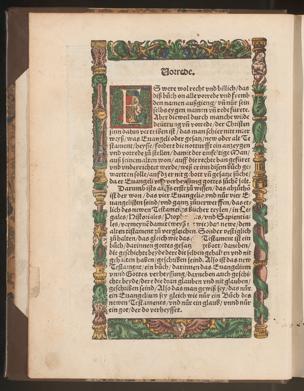 Vorrede.
Es were wol recht vnd billich / das
diß buch on alle vorrede vnd frembd
den namen außgieng / vñ nur sein
selbs eygen namen vñ rede furete.
Aber dieweil durch manche wilde
deuttung vñ vorrede / der Christen
sinn dahyn vertriben ist / das man schier nit mer
weyß / was Euangeli oder gesatz / new oder alt Te
stament / heysse / fordert die notturfft eyn antzeygen
vnd vorrede zu stellen / damit der
auß seinem alten won / auff die rechte ban gefüret
vnd vnderrichtet werde / was er inn disem buch ge
warten solle / auff das er nit gebott vñ gesetz suche /
da er Euangeli vnd verheyssung gottes suchen solt.
Darumb ist auffs erst zu wissen / das abzuthů
ist der won / das vier Euangelia vnd nur vier E-
uangelisten seind / vnd gantz
lich des newen Testaments bücher teylen / in Le
gales / Historiales / Prop vnd Sapientia
les / vermeynẽ damit
alten testament zu vergleichen. Sonder festiglich
zu halten / das gleich wie das Testament ist ein
buch / darinnen gottes gesatz gebott / daneben
die geschichte beyde dere die selben gehaltẽ vnd nit
gehalten haben / geschriben seind. Also ist das new
Testament / ein buch / darinnen das Euangelion
vnd Gottes verheyssung / darneben auch geschi
chte beyde / dere die dran glauben vnd nit glauben /
geschriben seind / Also das man gewiß sey / das nur
ein Euangelion sey / gleich wie nur ein Buch des
newen Testaments / vnd nur ein glaub / vnnd nur
ein got / der do verheysset.